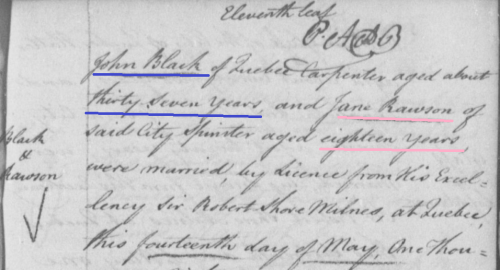 Eleventh leaf
John Black of Quebec Carpenter aged about
thirty Seven Years, and Jane Rawson of
said City Spinster aged eighteen Years
Black
&
Rawson
were married, by Licence from His Excel-
lency Sir Robert Shore Milnes, at Quebec,
this fourteenth day of May, One thou-